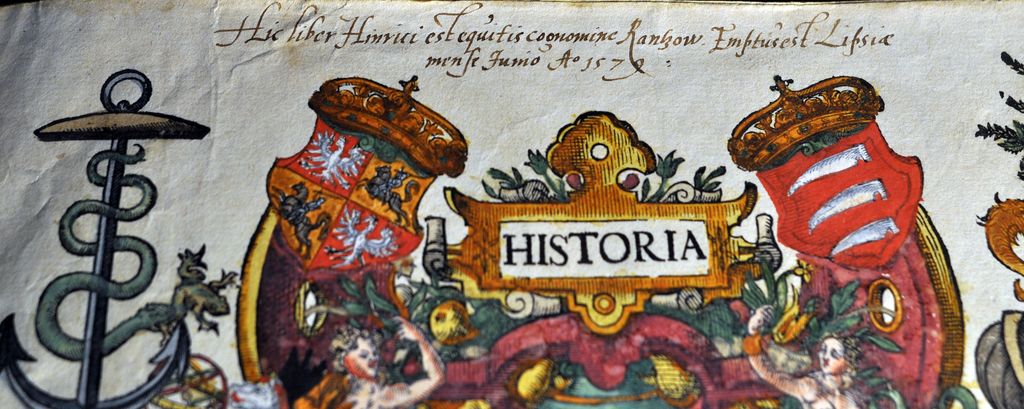 Hic liber Hinrici est equitis coonomine Rantzow. Emptus est Lipsiæ
mense Junio Ao 1579 :
HISTORIA